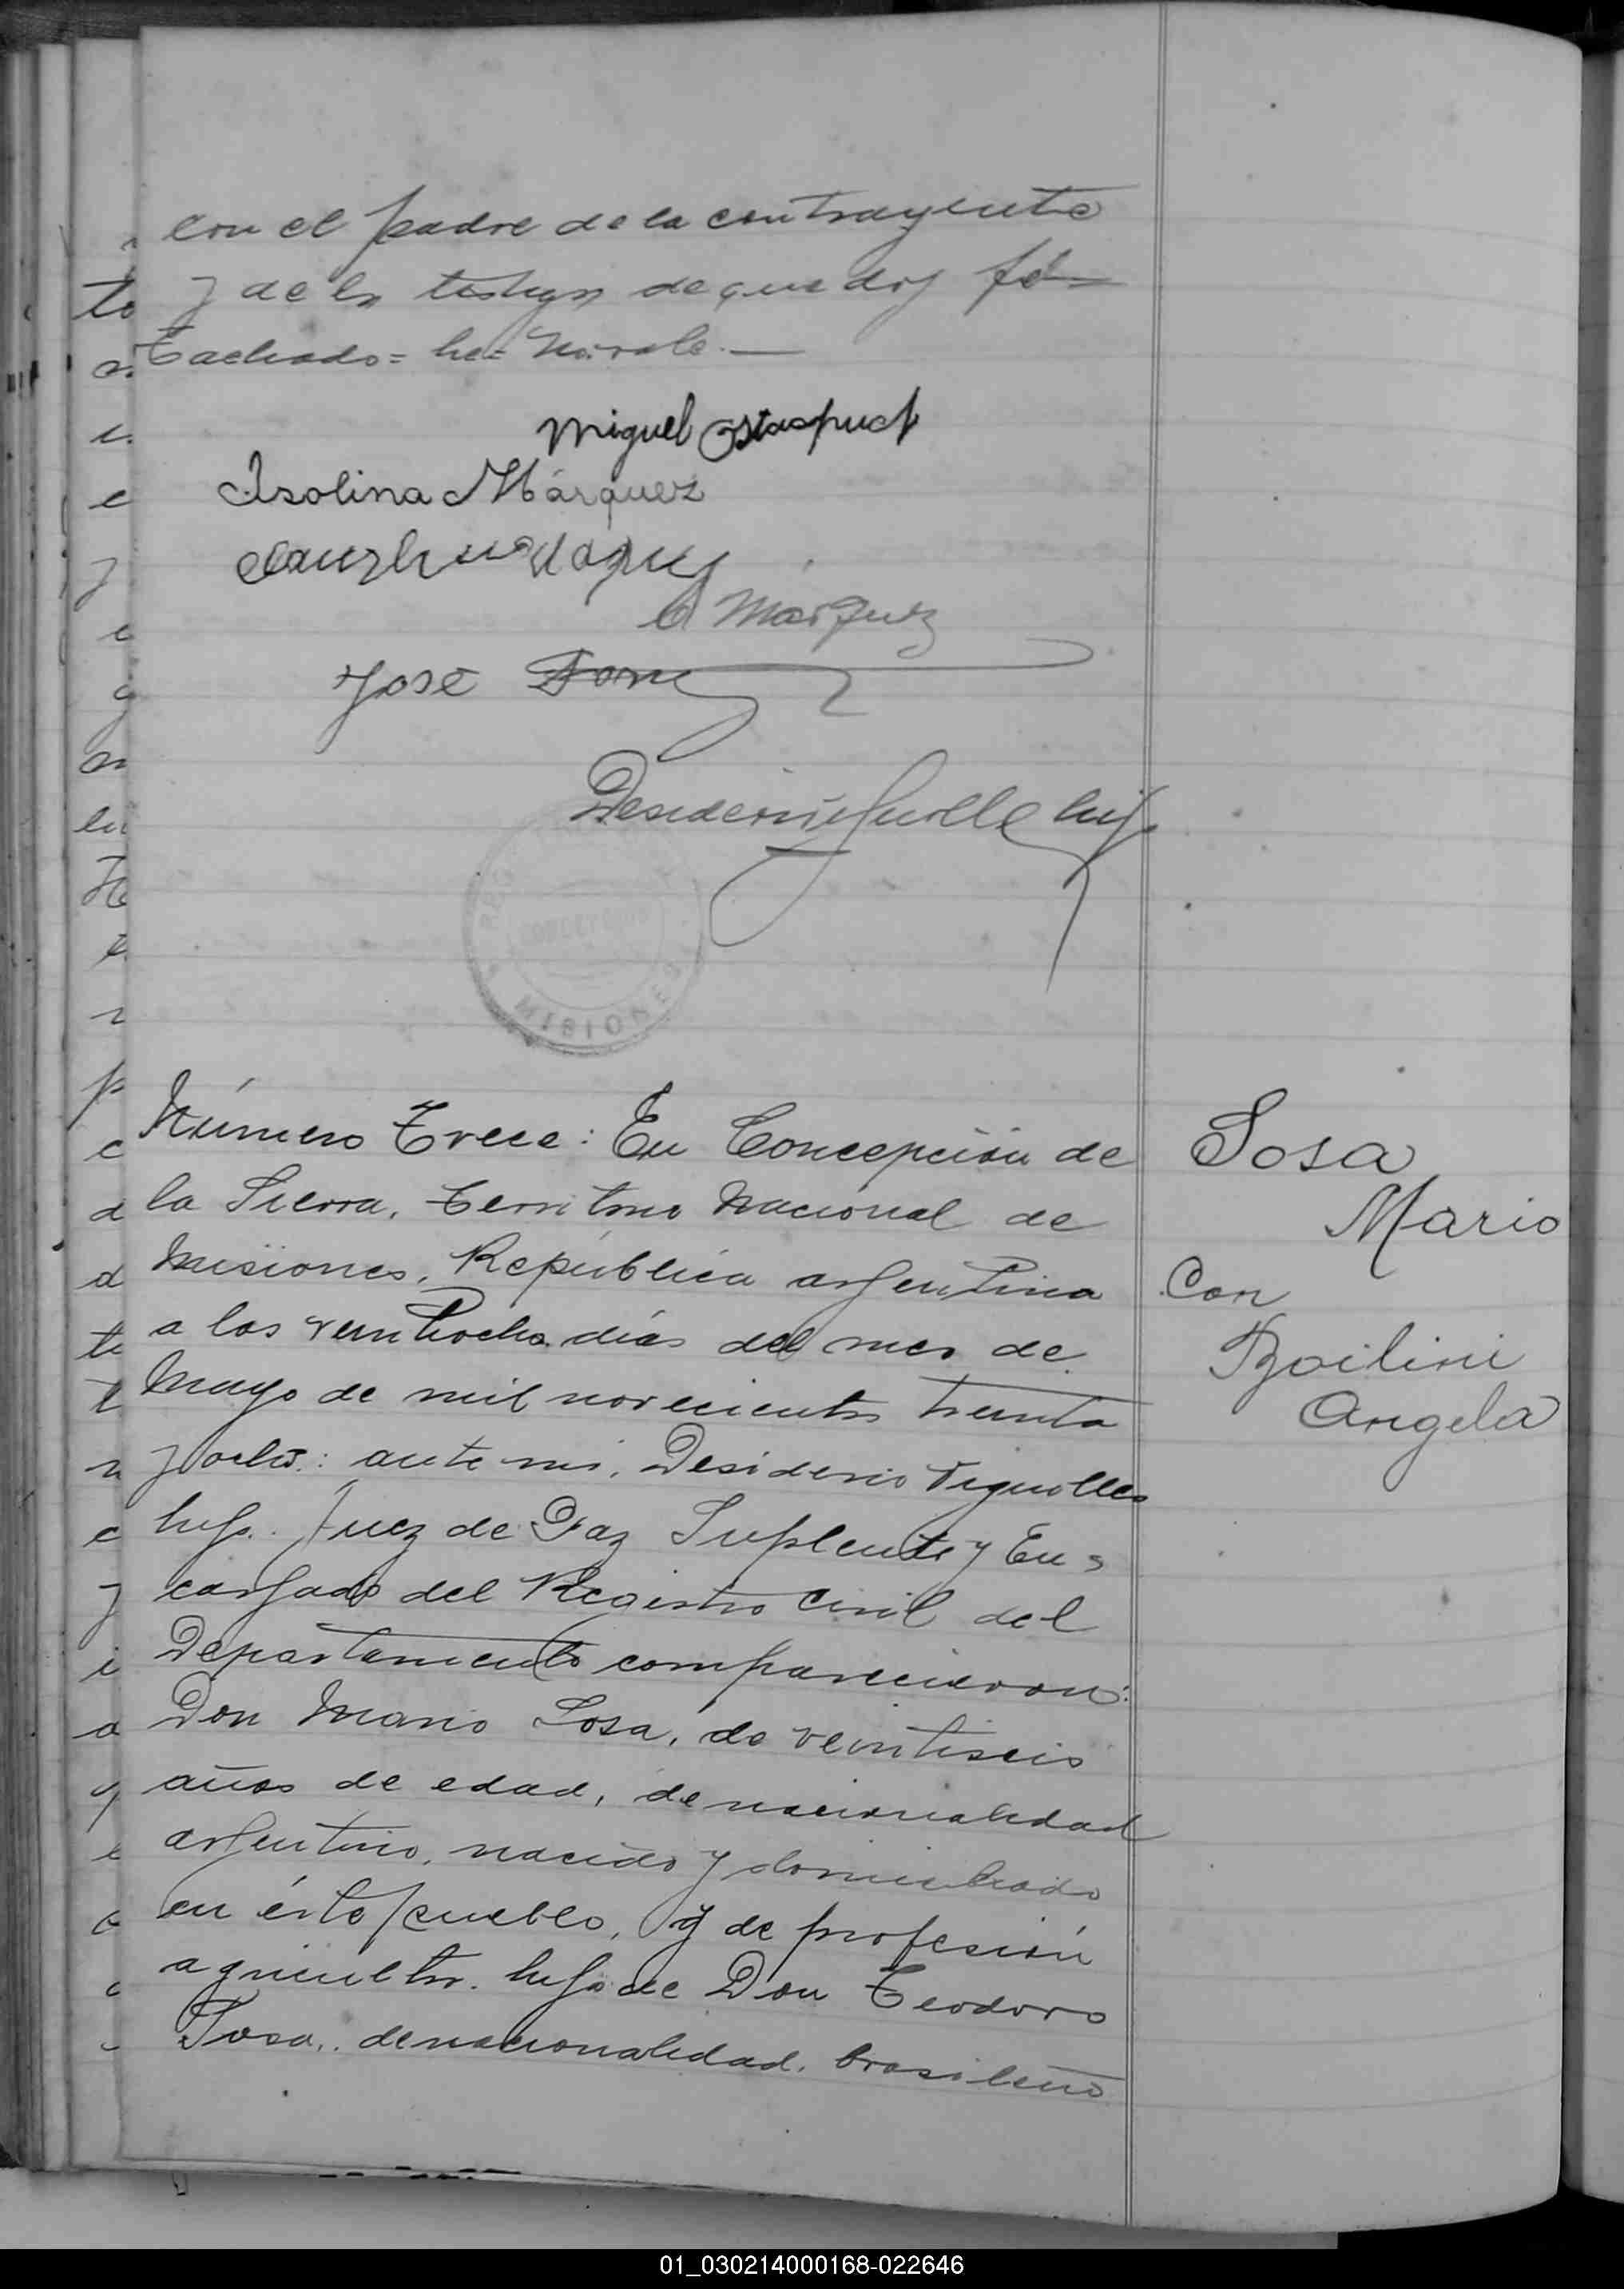 con el padre de la contrayente
y de los testigos de que doy fé
Tachado = he = No vale.
Miguel Ostaspuck
Isolina Márquez
Márquez
José
Desiderio hijo
MISIONES
Número Trece: En Concepción de
la Sierra, Territorio Nacional de
Misiones, República argentina
a los veintiocho días del mes de
Mayo de mil novecientos treinta
y ocho: ante mi, Desiderio Vignolles
hijo. Juez de Paz Suplente y En=
cargado del Registro Civil del
Departamento comparecieron:
Don Mario Sosa, de veintiseis
años de edad, de nacionalidad
argentino, nacido y domiciliado
en éste pueblo, y de profesión
agricultor. hijo de Don Teodoro
Sosa, de nacionalidad brasileño
Sosa
Mario
Con
Boilini
Angela
01_030214000168-022646